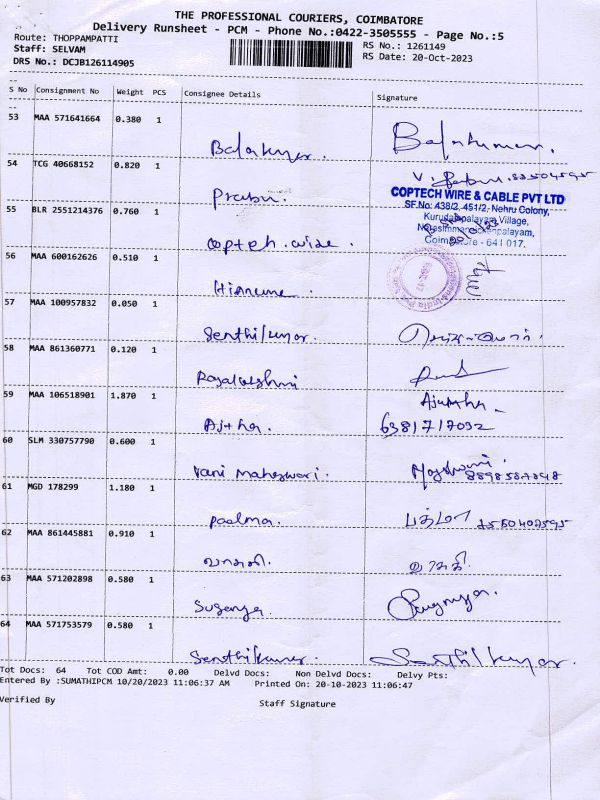 THE PROFESSIONAL COURIERS, COIMBATORE
Delivery Runsheet - PCM - Phone No.:0422-3505555 - Page No.:5
Route: THOPPAMPATTI
Staff: SELVAM
DRS No.: DCJB126114905
RS No.: 1261149
RS Date: 20-Oct-2023
S No Consignment No Weight PCS Consignee Details Signature
53 MAA 571641664 0.380 1
Balakumar.
54 TCG 40668152 0.820 1
Prabu.
COPTECH WIRE & CABLE PVT LTD
SF.No: 438/2, 451/2, Nehru Colony,
Kurudampalayam Village,
Narasimmanaickenpalayam,
Coimbatore - 641 017.
55 BLR 2551214376 0.760 1
56 MAA 600162626 0.510 1
57 MAA 100957832 0.050 1
Senthilkumar.
58 MAA 861360771 0.120 1
Rajalakshmi
59 MAA 106518901 1.870 1
Ajitha. 6381717032
60 SLM 330757790 0.600 1
Vani Maheswari.
61 MGD 178299 1.180 1
Padma. பத்மா
62 MAA 861445881 0.910 1
வாசுகி.
63 MAA 571202898 0.580 1
Suganya.
64 MAA 571753579 0.580 1
Senthilkumar Senthilkumar.
Tot Docs: 64 Tot COD Amt: 0.00 Delvd Docs: Non Delvd Docs: Delvy Pts:
Entered By :SUMATHIPCM 10/20/2023 11:06:37 AM Printed On: 20-10-2023 11:06:47
Verified By Staff Signature